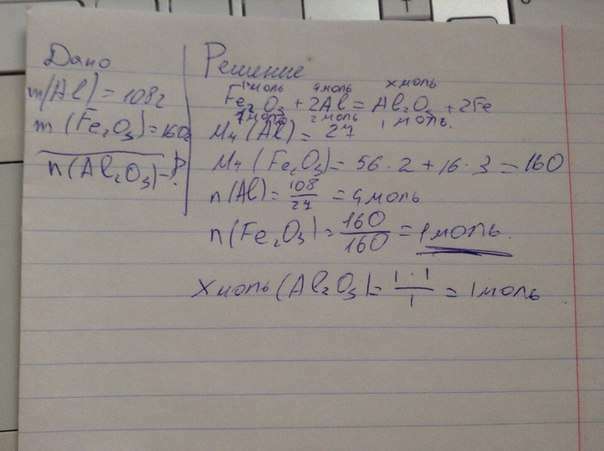 Дано
m(Al) = 108г
m(Fe₂O₃) = 160г
n(Al₂O₃) - ?
Решение
1 моль 4 моль x моль
Fe₂O₃ + 2Al = Al₂O₃ + 2Fe
1 моль 2 моль 1 моль.
Mч(Al) = 27
Mч(Fe₂O₃) = 56 · 2 + 16 · 3 = 160
n(Al) = 108/27 = 4 моль
n(Fe₂O₃) = 160/160 = 1 моль.
X моль (Al₂O₃) = 1 · 1/1 = 1 моль